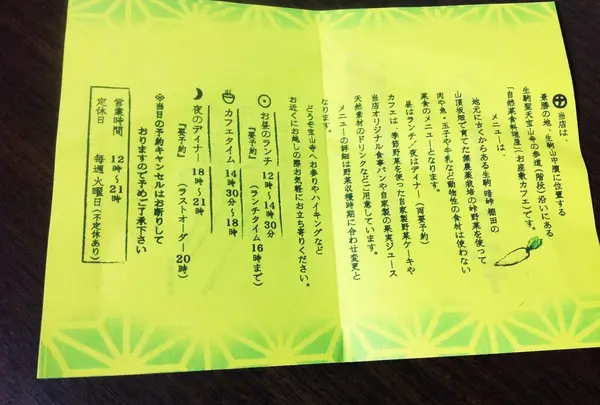 当店は、
景勝の地、生駒山中腹に位置する
生駒聖天宝山寺の参道(階段)沿いにある
「自然菜食料理屋」(お座敷カフェ)です。
メニューは、
地元に古くからある生駒 暗峠 棚田の
山頂坂畑で育てた無農薬栽培の峠野菜を使って
肉や魚・玉子や牛乳など動物性の食材は使わない
菜食のメニューとなります。
昼はランチ/夜はディナー(両要予約)
カフェは、季節野菜を使った自家製野菜ケーキや
当店オリジナル食事パンや自家製の果実ジュース
天然素材のドリンクなどご用意しています。
メニューの詳細は野菜収穫時期に合わせ変更と
なります。
どうぞ宝山寺へお参りやハイキングなど
お近くにお越しの際お気軽にお立ち寄りください。
お昼のランチ 12時~14時30分
『要予約』 (ランチタイム16時まで)
カフェタイム 14時30分~18時
夜のディナー 18時~21時
『要予約』 (ラストオーダー20時)
※当日の予約キャンセルはお断りして
おりますので予めご了承下さい
営業時間 12時~21時
定休日 毎週火曜日(不定休あり)